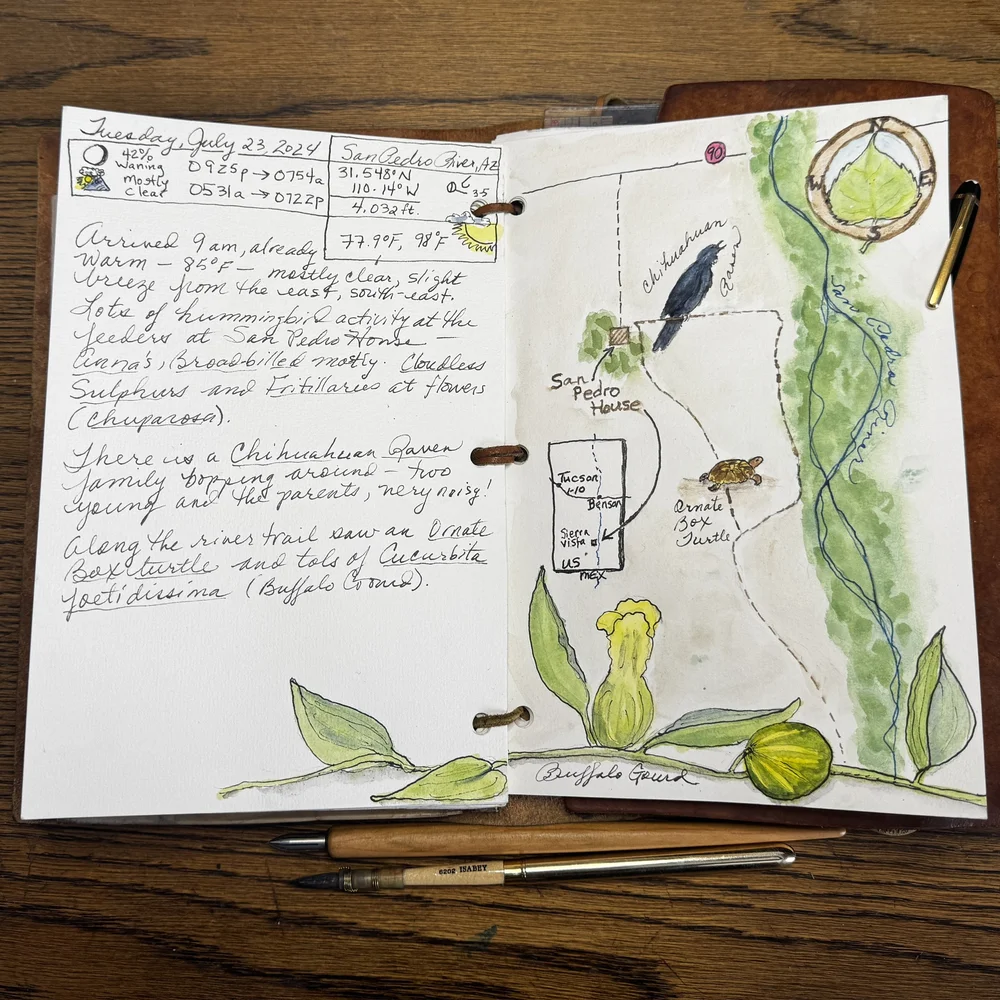 Tuesday, July 23, 2024
42%
Waning
mostly
clear
0925p → 0754a
0531a → 0722p
San Pedro River, AZ
31.548°N
110.14°W
3-5
4,032 ft.
77.9°F, 98°F
Arrived 9am, already
warm — 85°F — mostly clear, slight
breeze from the east, south-east.
Lots of hummingbird activity at the
feeders at San Pedro House —
Anna's, Broadbilled mostly. Cloudless
Sulphurs and Fritillaries at flowers
(Chuparosa).
There is a Chihuahuan Raven
family bopping around — two
young and the parents, very noisy!
Along the river trail saw an Ornate
Box turtle and tols of Cucurbita
foetidissima (Buffalo Gourd).
90
N
W
E
S
Chihuahuan
Raven
San Pedro River
San
Pedro
House
Tucson
I-10
Benson
Sierra
Vista
US
MEX
Ornate
Box
Turtle
Buffalo Gourd
6202 ISABEY